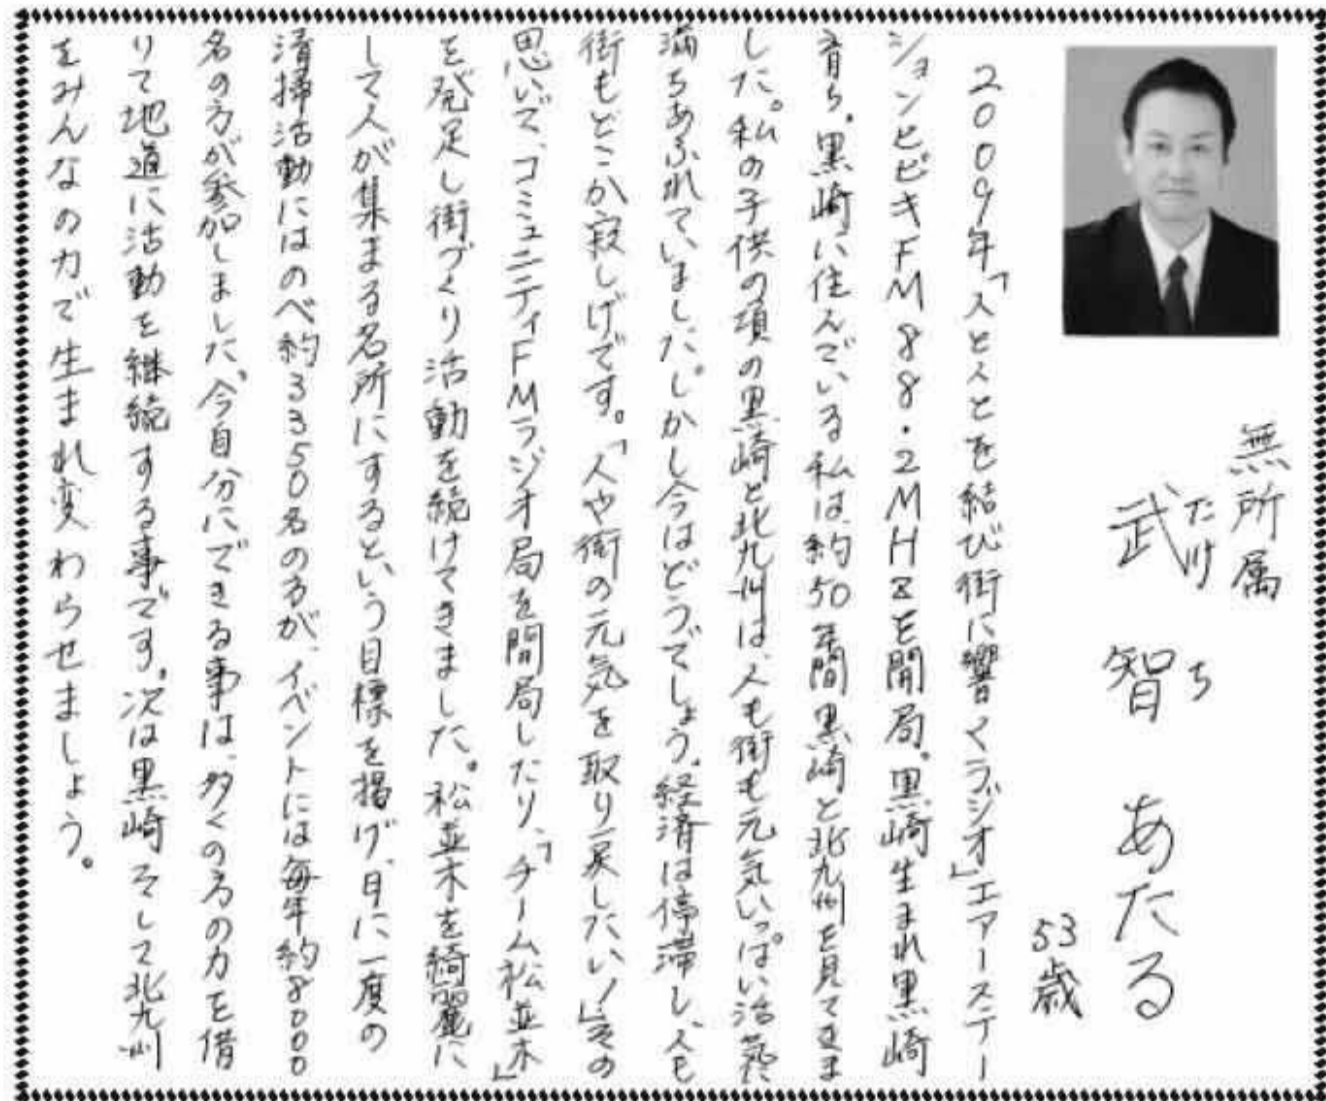 無所属
武智あたる
たけち
53歳
2009年「人と人とを結び街に響くラジオ」エアーステー
ションヒビキFM88.2MHzを開局。黒崎生まれ黒崎
育ち。黒崎に住んでいる私は、約50年間黒崎と北九州を見てきま
した。私の子供の項の黒崎と北九州は、人も街も元気いっぱい活気に
満ちあふれていました。しかし今はどうでしょう。経済は停滞し、人も
街もどこか寂しげです。「人や街の元気を取り戻したい!」その
思いで、コミュニティFMラジオ局を開局したり、「チーム松並木」
を発足し街づくり活動を続けてきました。松並木を綺麗に
して人が集まる名所にするという目標を掲げ、月に一度の
清掃活動にはのべ約3350名の方が、イベントには毎年約8000
名の方が参加しました。今自分にできる事は、多くの方の力を借
りて地道に活動を継続する事です。次は黒崎そして北九州
をみんなの力で生まれ変わらせましょう。